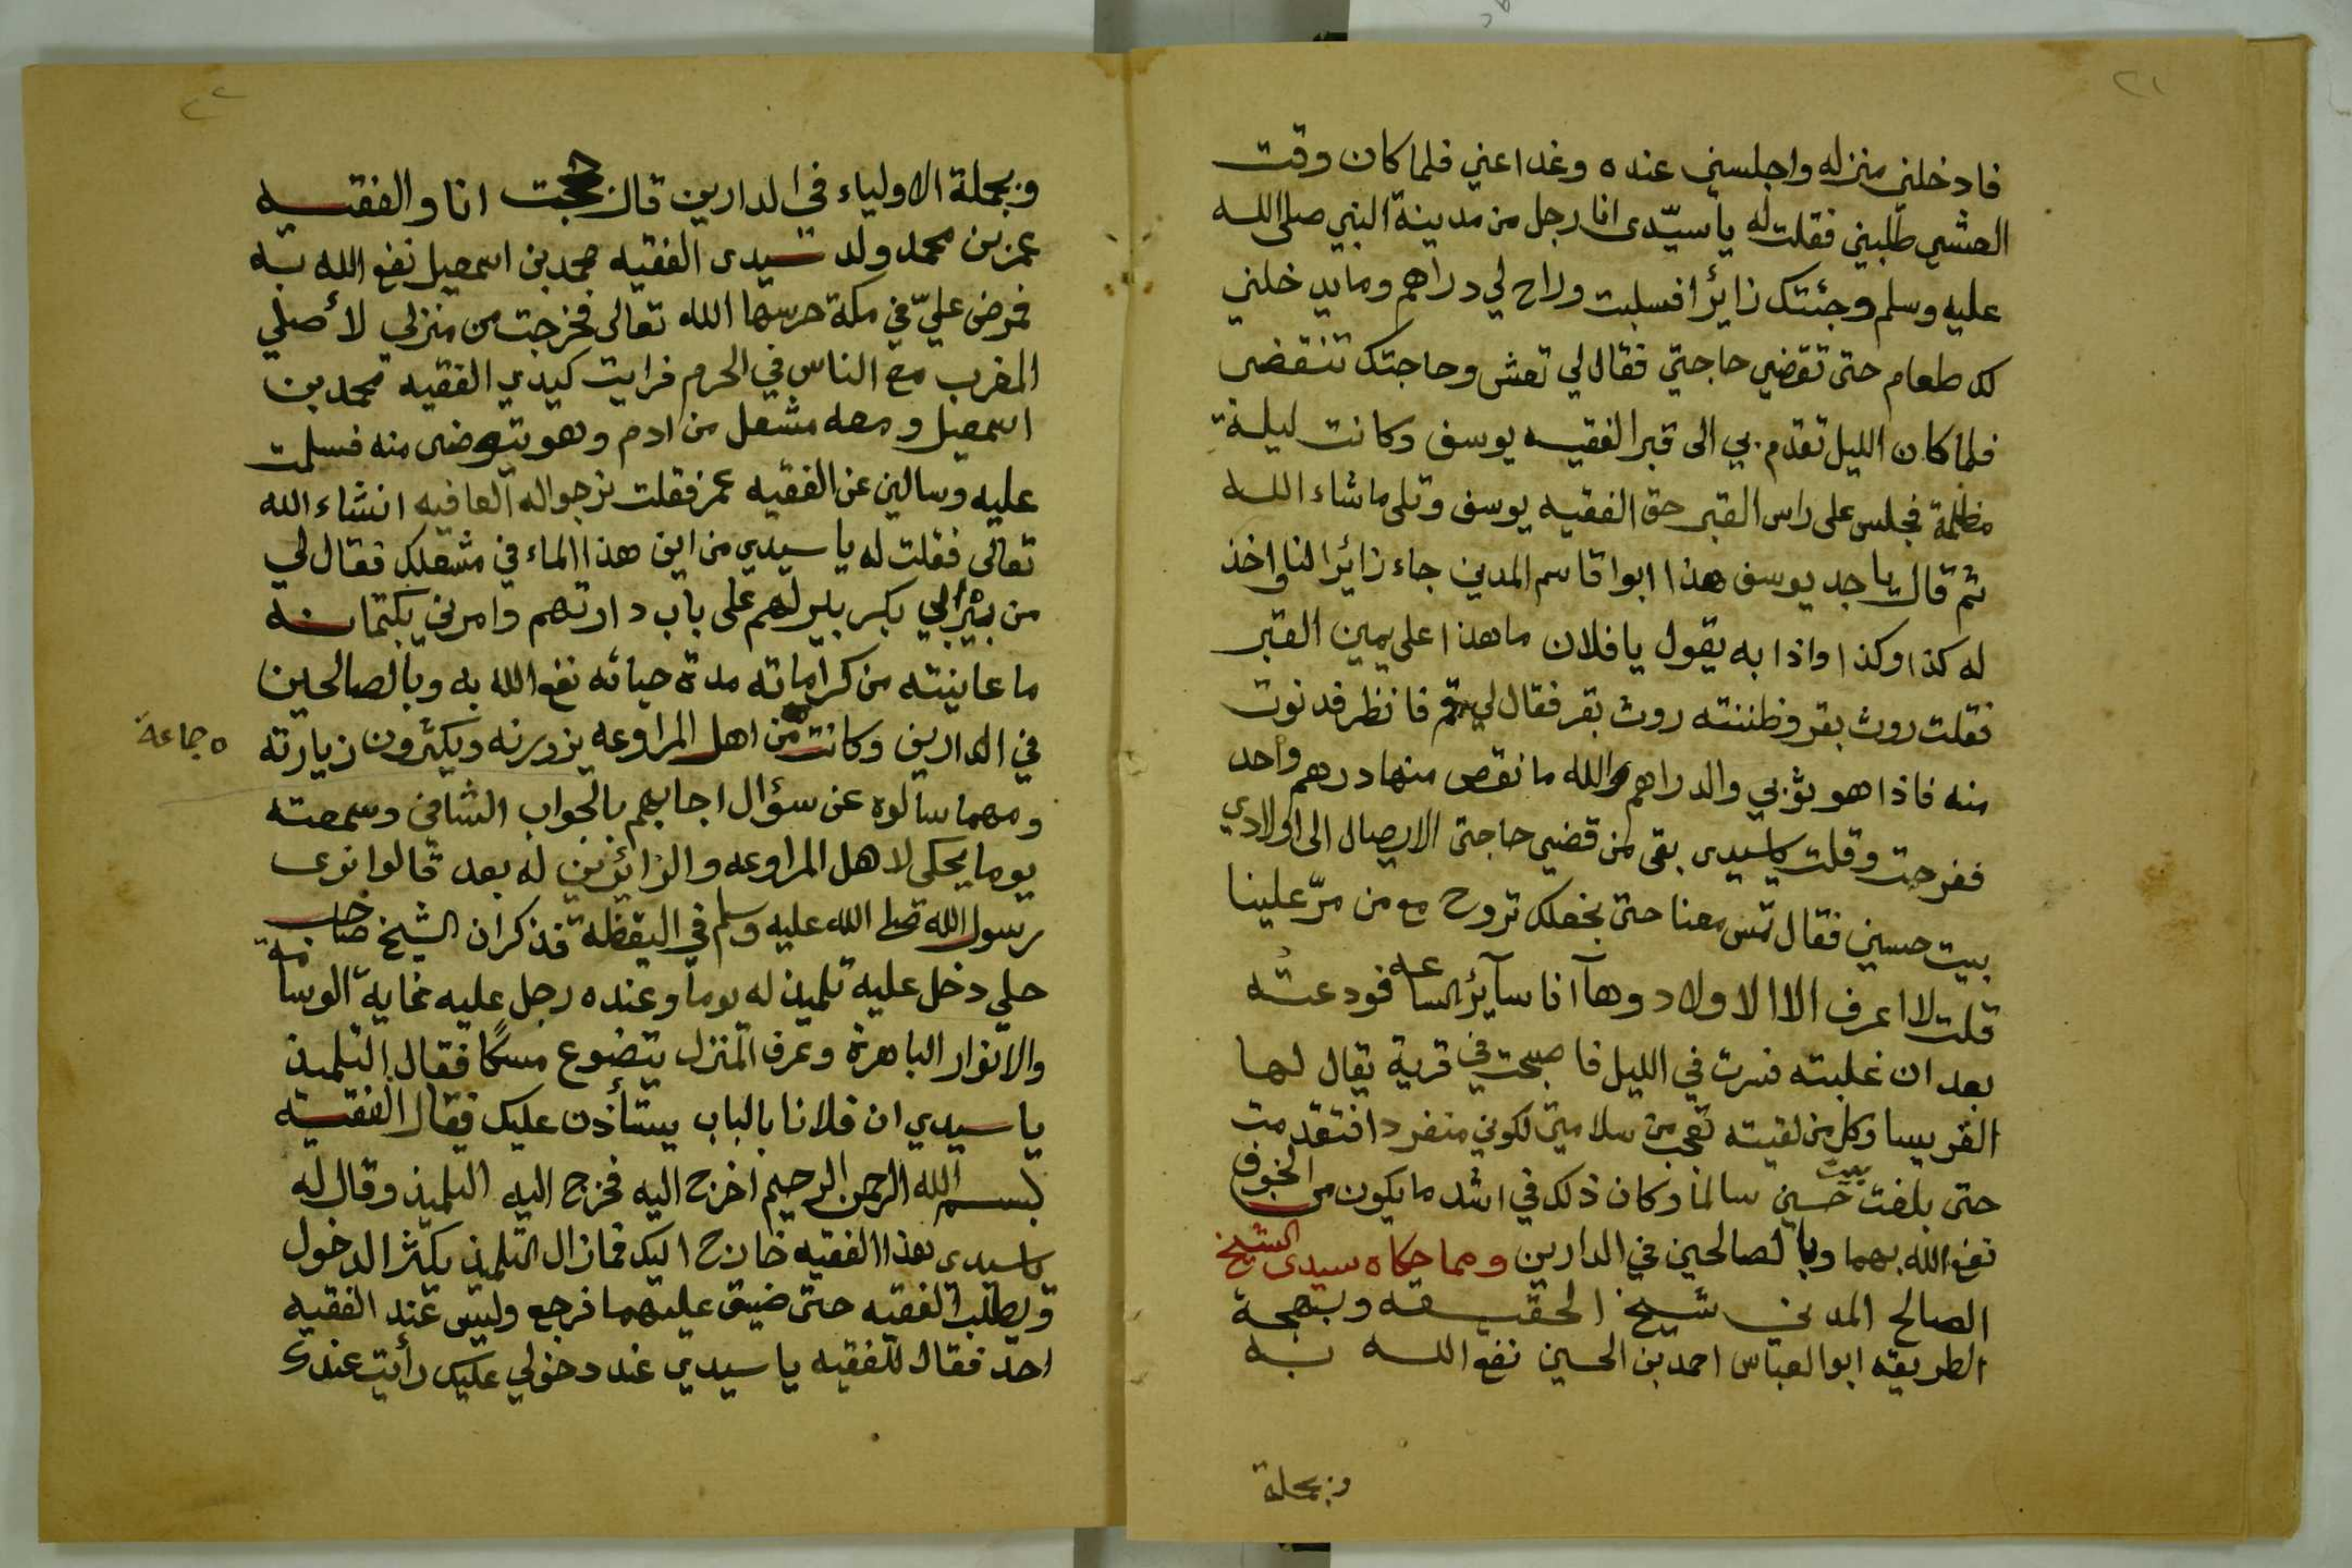 ٢١
فادخلني منزله واجلسني عنده وغدا عني فلما كان وقت
العشي طلبني فقلت له يا سيّدى انا رجل من مدينة النبي صلى الله
عليه وسلم وجئتك زائرا فسلبت وراح لي دراهم وما يدخلني
لك طعام حتى تقضي حاجتي فقال لي تعش وحاجتك تنقضى
فلما كان الليل تقدم بي الى قبر الفقيه يوسف وكانت ليلة
مظلمة فجلس على راس القبر حق الفقيه يوسف وتلى ما شاء الله
ثم قال يا جد يوسف هذا ابوا قاسم المدني جاء زائرا لنا واخذ
له كذا وكذا واذا به يقول يا فلان ما هذا على يمين القبر
فقلت روث بقر وظننته روث بقر فقال لي قم فانظر فدنوت
منه فاذا هو ثوبي والدراهم والله ما نقص منها درهم واحد
ففرحت وقلت ياسيدى بقى لمن قضي حاجتى الايصال الى اولادي
بيت حسين فقال تمس معنا حتى نجعلك تروح مع من مرّ علينا
قلت لا اعرف الا الاولاد وها آنا سآئر الساعه فودعته
بعد ان غلبته فسرت في الليل فاصبحت في قرية يقال لها
القريسا وكل من لقيته تعجب من سلامتي لكوني منفردا فتقدمت
حتى بلغت بيت حسين سالما وكان ذلك في اشد ما يكون من الخوف
نفع الله بهما وبالصالحين في الدارين ومما حكاه سيدى الشيخ
الصالح المدني شيخ الحقيقه وبهجة
الطريقه ابو العباس احمد بن الحسين نفع الله به
وبجملة
٢٢
وبجملة الاولياء في الدارين قال حججت انا والفقيه
عمر بن محمد ولد سيدى الفقيه محمد بن اسمعيل نفع الله به
فمرض عليّ في مكة حرسها الله تعالى فخرجت من منزلي لأصلي
المغرب مع الناس في الحرم فرايت سيدي الفقيه محمد بن
اسمعيل ومعه مشعل من ادم وهو يتوضى منه فسلمت
عليه وسالني عن الفقيه عمر فقلت نرجوا له العافيه انشاء الله
تعالى فقلت له يا سيدي من اين هذا الماء في مشعلك فقال لي
من بئر ابي بكر بير لهم على باب دارتهم وامرني بكتمانه
ما عاينته من كراماته مدة حياته نفع الله به وبالصالحين
في الدارين وكانت من اهل المراوعه يزورنه ويكثرون زيارته
ه جماعة
ومهما سالوه عن سؤال اجابهم بالجواب الشافي وسمعته
يوما يحكي لاهل المراوعه والزائرين له بعد قالوا نرى
رسول الله صلى الله عليه وسلم في اليقظة فذكر ان الشيخ صاحب
حلي دخل عليه تلميذ له يوما وعنده رجل عليه غاية الوسامة
والانوار الباهرة وعرف المنزل يتضوع مسكًا فقال التلميذ
يا سيدي ان فلانا بالباب يستأذن عليك فقال الفقيه
بسم الله الرحمن الرحيم اخرج اليه فخرج اليه التلميذ وقال له
ياسيدى هذا الفقيه خارج اليك فمازال التلميذ يكثر الدخول
ويطلب الفقيه حتى ضيق عليهما فرجع وليس عند الفقيه
احد فقال للفقيه يا سيدي عند دخولي عليك رأيت عندك